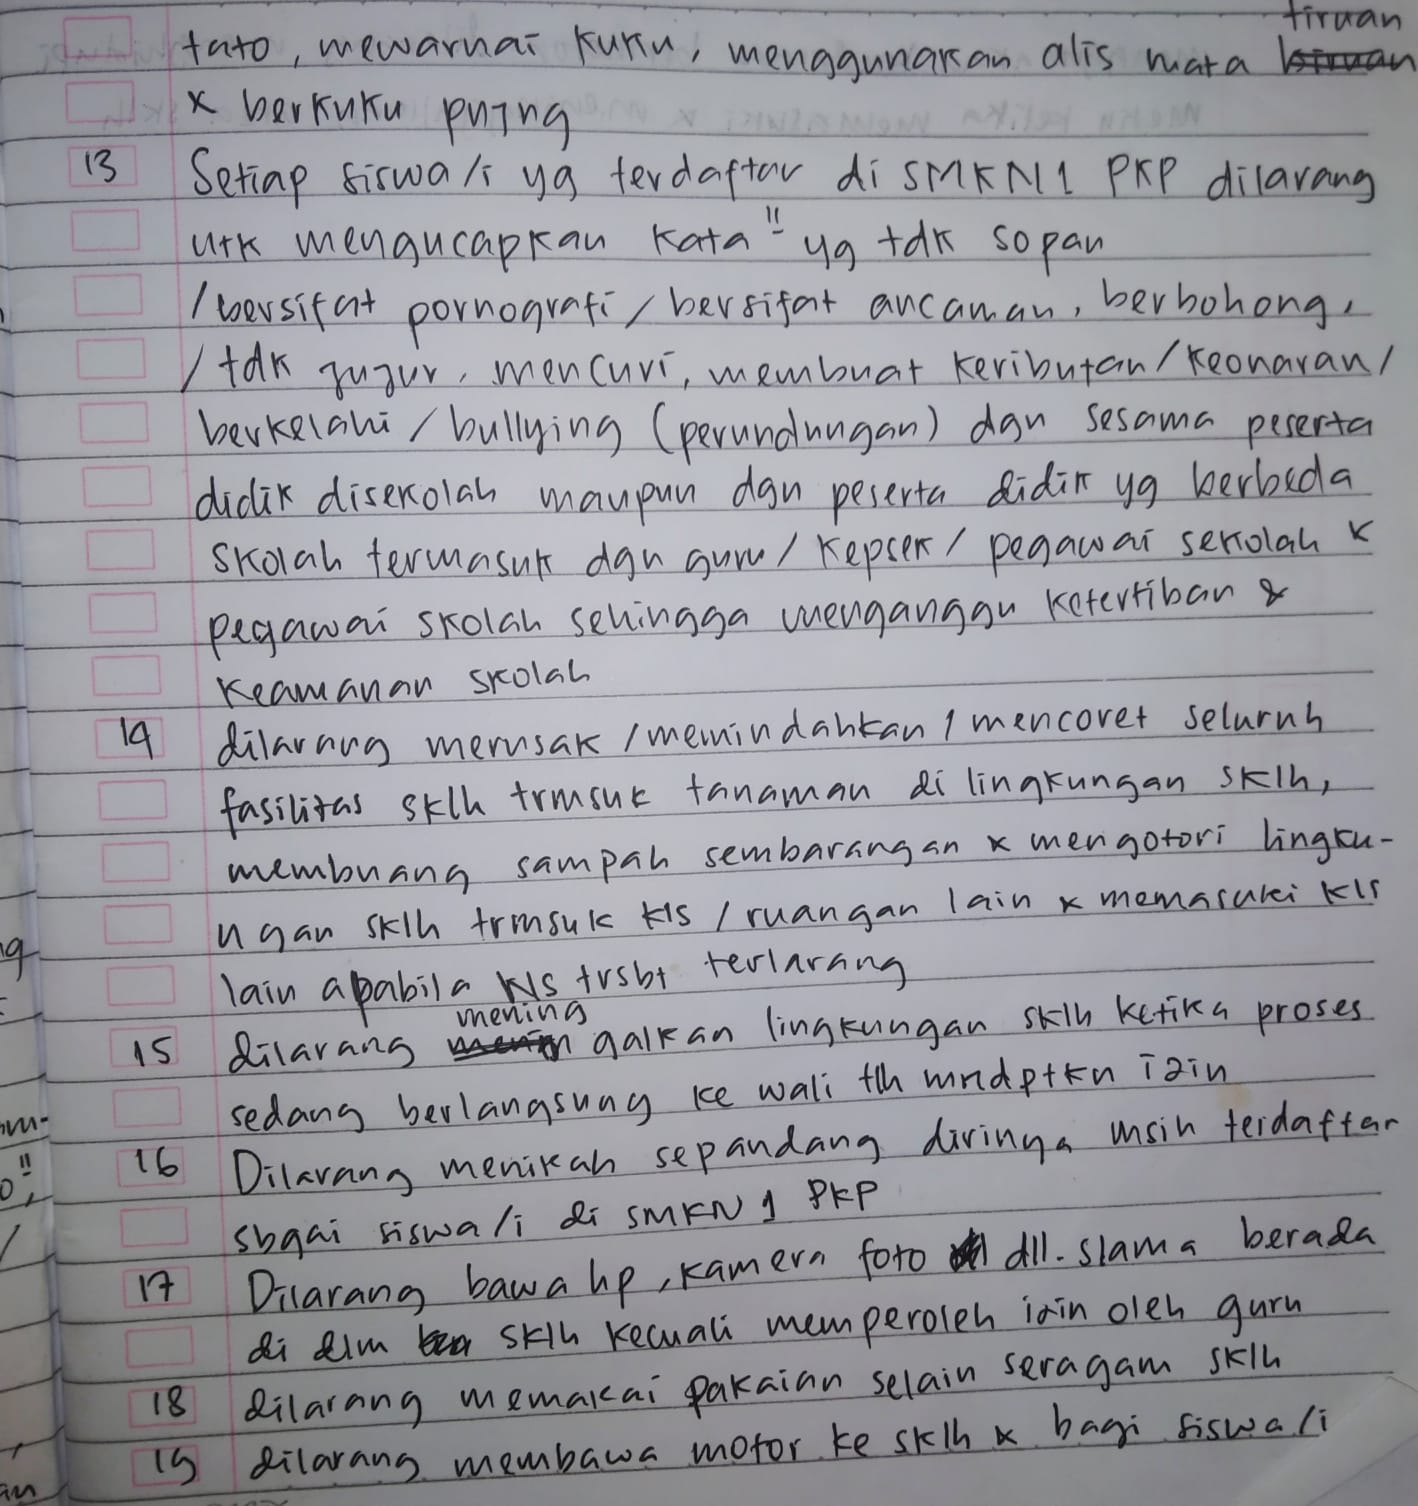 tato, mewarnai kuku, menggunakan alis mata tiruan
x berkuku pnjng
13 Setiap siswa/i yg terdaftar di SMKN 1 PKP dilarang
utk mengucapkan kata" yg tdk sopan
/bersifat pornografi/bersifat ancaman, berbohong,
/tdk jujur, mencuri, membuat keributan/keonaran/
berkelahi/bullying (perundungan) dgn sesama peserta
didik disekolah maupun dgn peserta didik yg berbeda
skolah termasuk dgn guru/kepsek/pegawai sekolah x
pegawai skolah sehingga menganggu ketertiban &
keamanan skolah
14 dilarang merusak/memindahkan/mencoret seluruh
fasilitas sklh trmsuk tanaman di lingkungan sklh,
membuang sampah sembarangan x mengotori lingku-
ngan sklh trmsuk kls/ruangan lain x memasuki kls
lain apabila kls trsbt terlarang
15 dilarang meninggalkan lingkungan sklh ketika proses
sedang berlangsung ke wali tlh mndptkn izin
16 Dilarang menikah sepandang dirinya msih terdaftar
sbgai siswa/i di SMKN 1 PKP
17 Dilarang bawa hp, kamera foto dll. slama berada
di dlm sklh kecuali memperoleh izin oleh guru
18 dilarang memakai pakaian selain seragam sklh
19 dilarang membawa motor ke sklh x bagi siswa/i